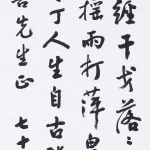 干戈落〻
摇雨打萍皇
丁人生自古
先生正 七十